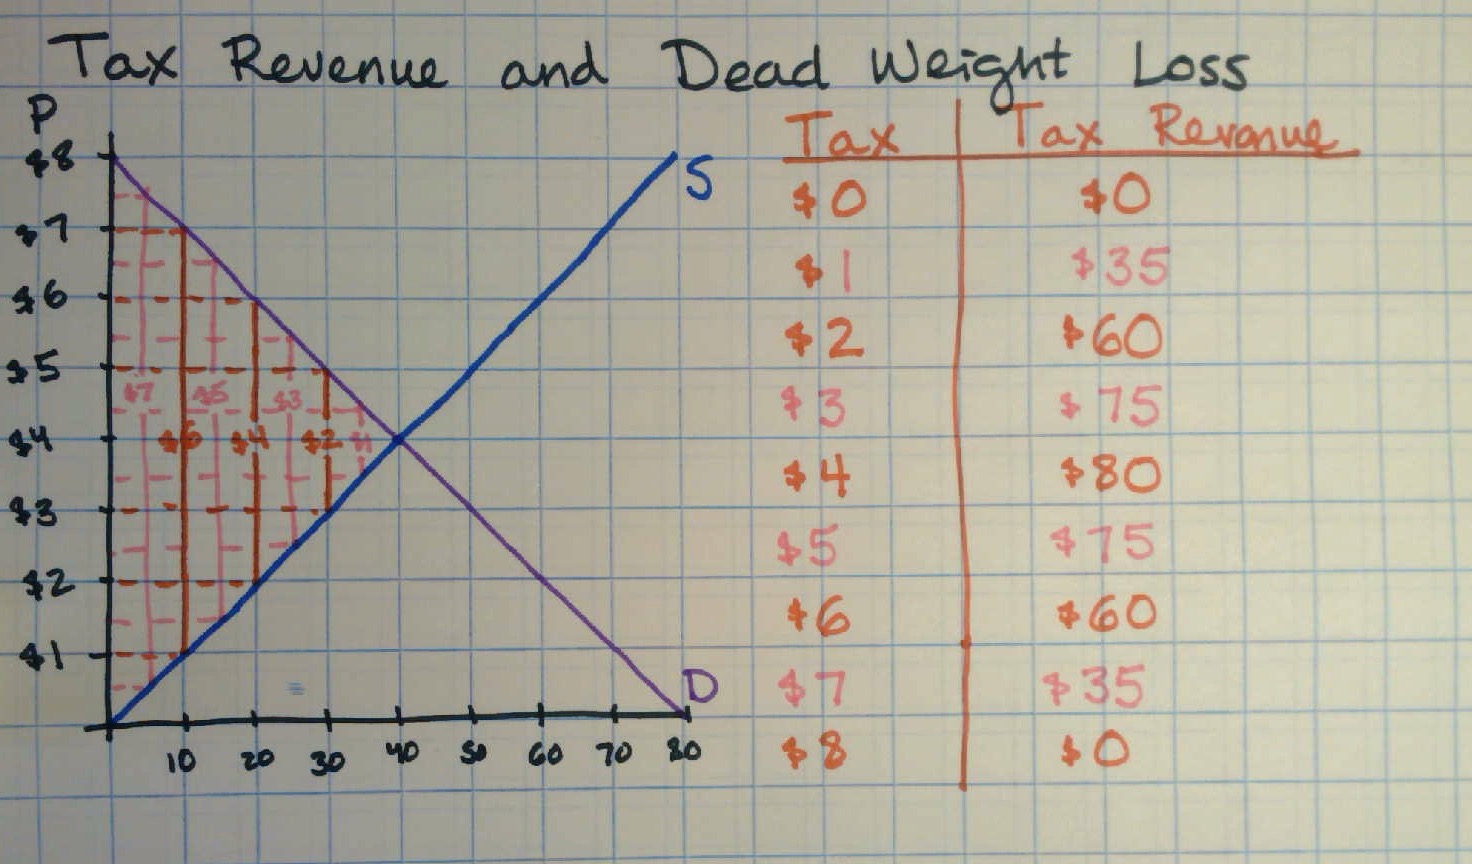 Tax Revenue and Dead Weight Loss
P
$8
$7
$6
$5
$4
$3
$2
$1
10 20 30 40 50 60 70 80
S
D
$7 $5 $3
$6 $4 $2 $1
Tax Tax Revenue
$0 $0
$1 $35
$2 $60
$3 $75
$4 $80
$5 $75
$6 $60
$7 $35
$8 $0